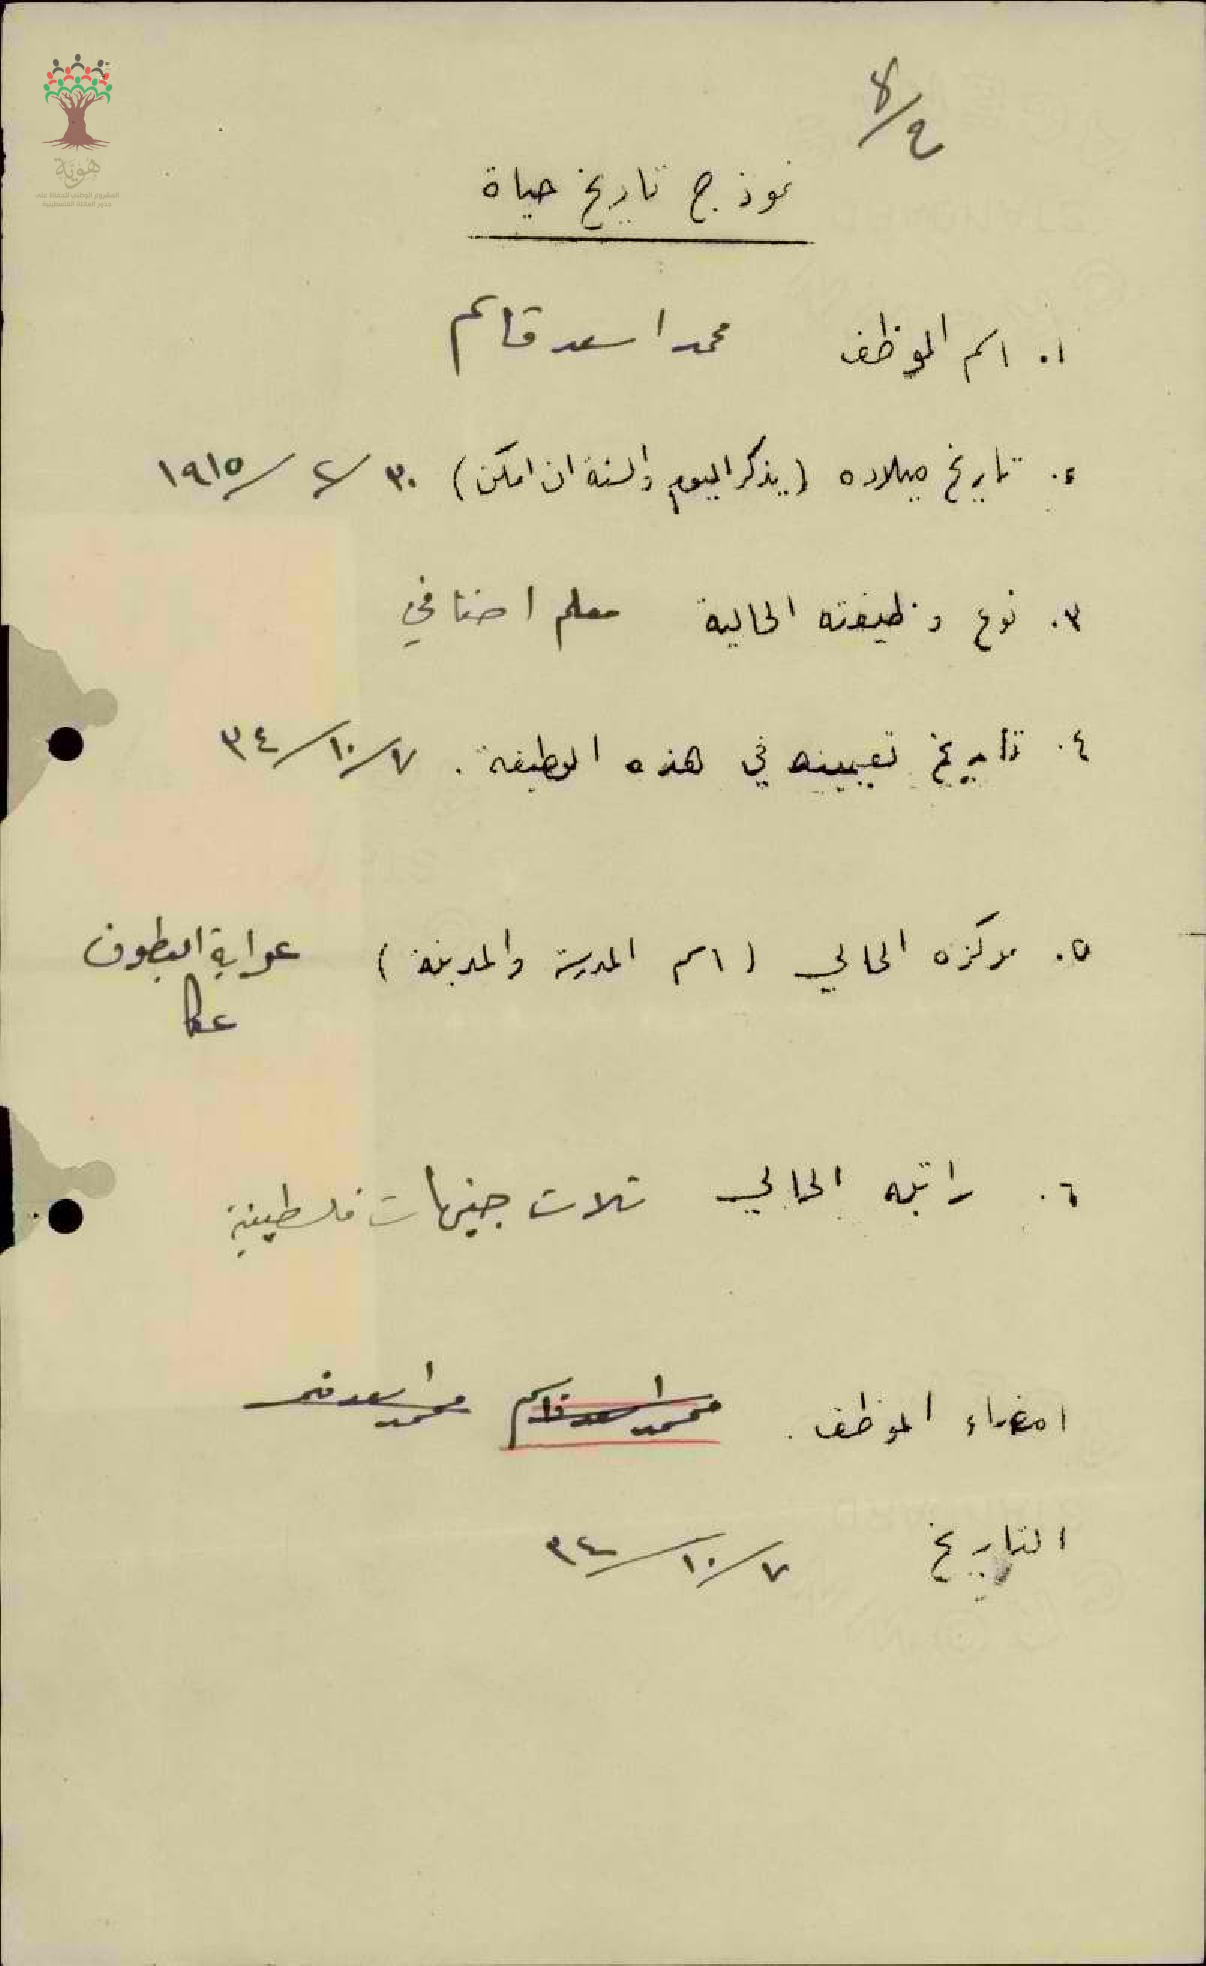 هوية
المشروع الوطني للحفاظ على
جذور العائلة الفلسطينية
نموذج تاريخ حياة
١. اسم الموظف محمد اسعد قاسم
٢. تاريخ ميلاده (يذكر اليوم والسنة ان امكن) ٣٠/٢/١٩١٥
٣. نوع وظيفته الحالية معلم اضافي
٤. تاريخ تعيينه في هذه الوظيفة. ٧/١٠/٣٤
٥. مركزه الحالي (اسم المدرسة والمدينة) عرابة البطوف
عكا
٦. راتبه الحالي ثلاث جنيهات فلسطينية
امضاء الموظف. محمد اسعد قاسم محمد اسعد قاسم
التاريخ ٧/١٠/٣٤